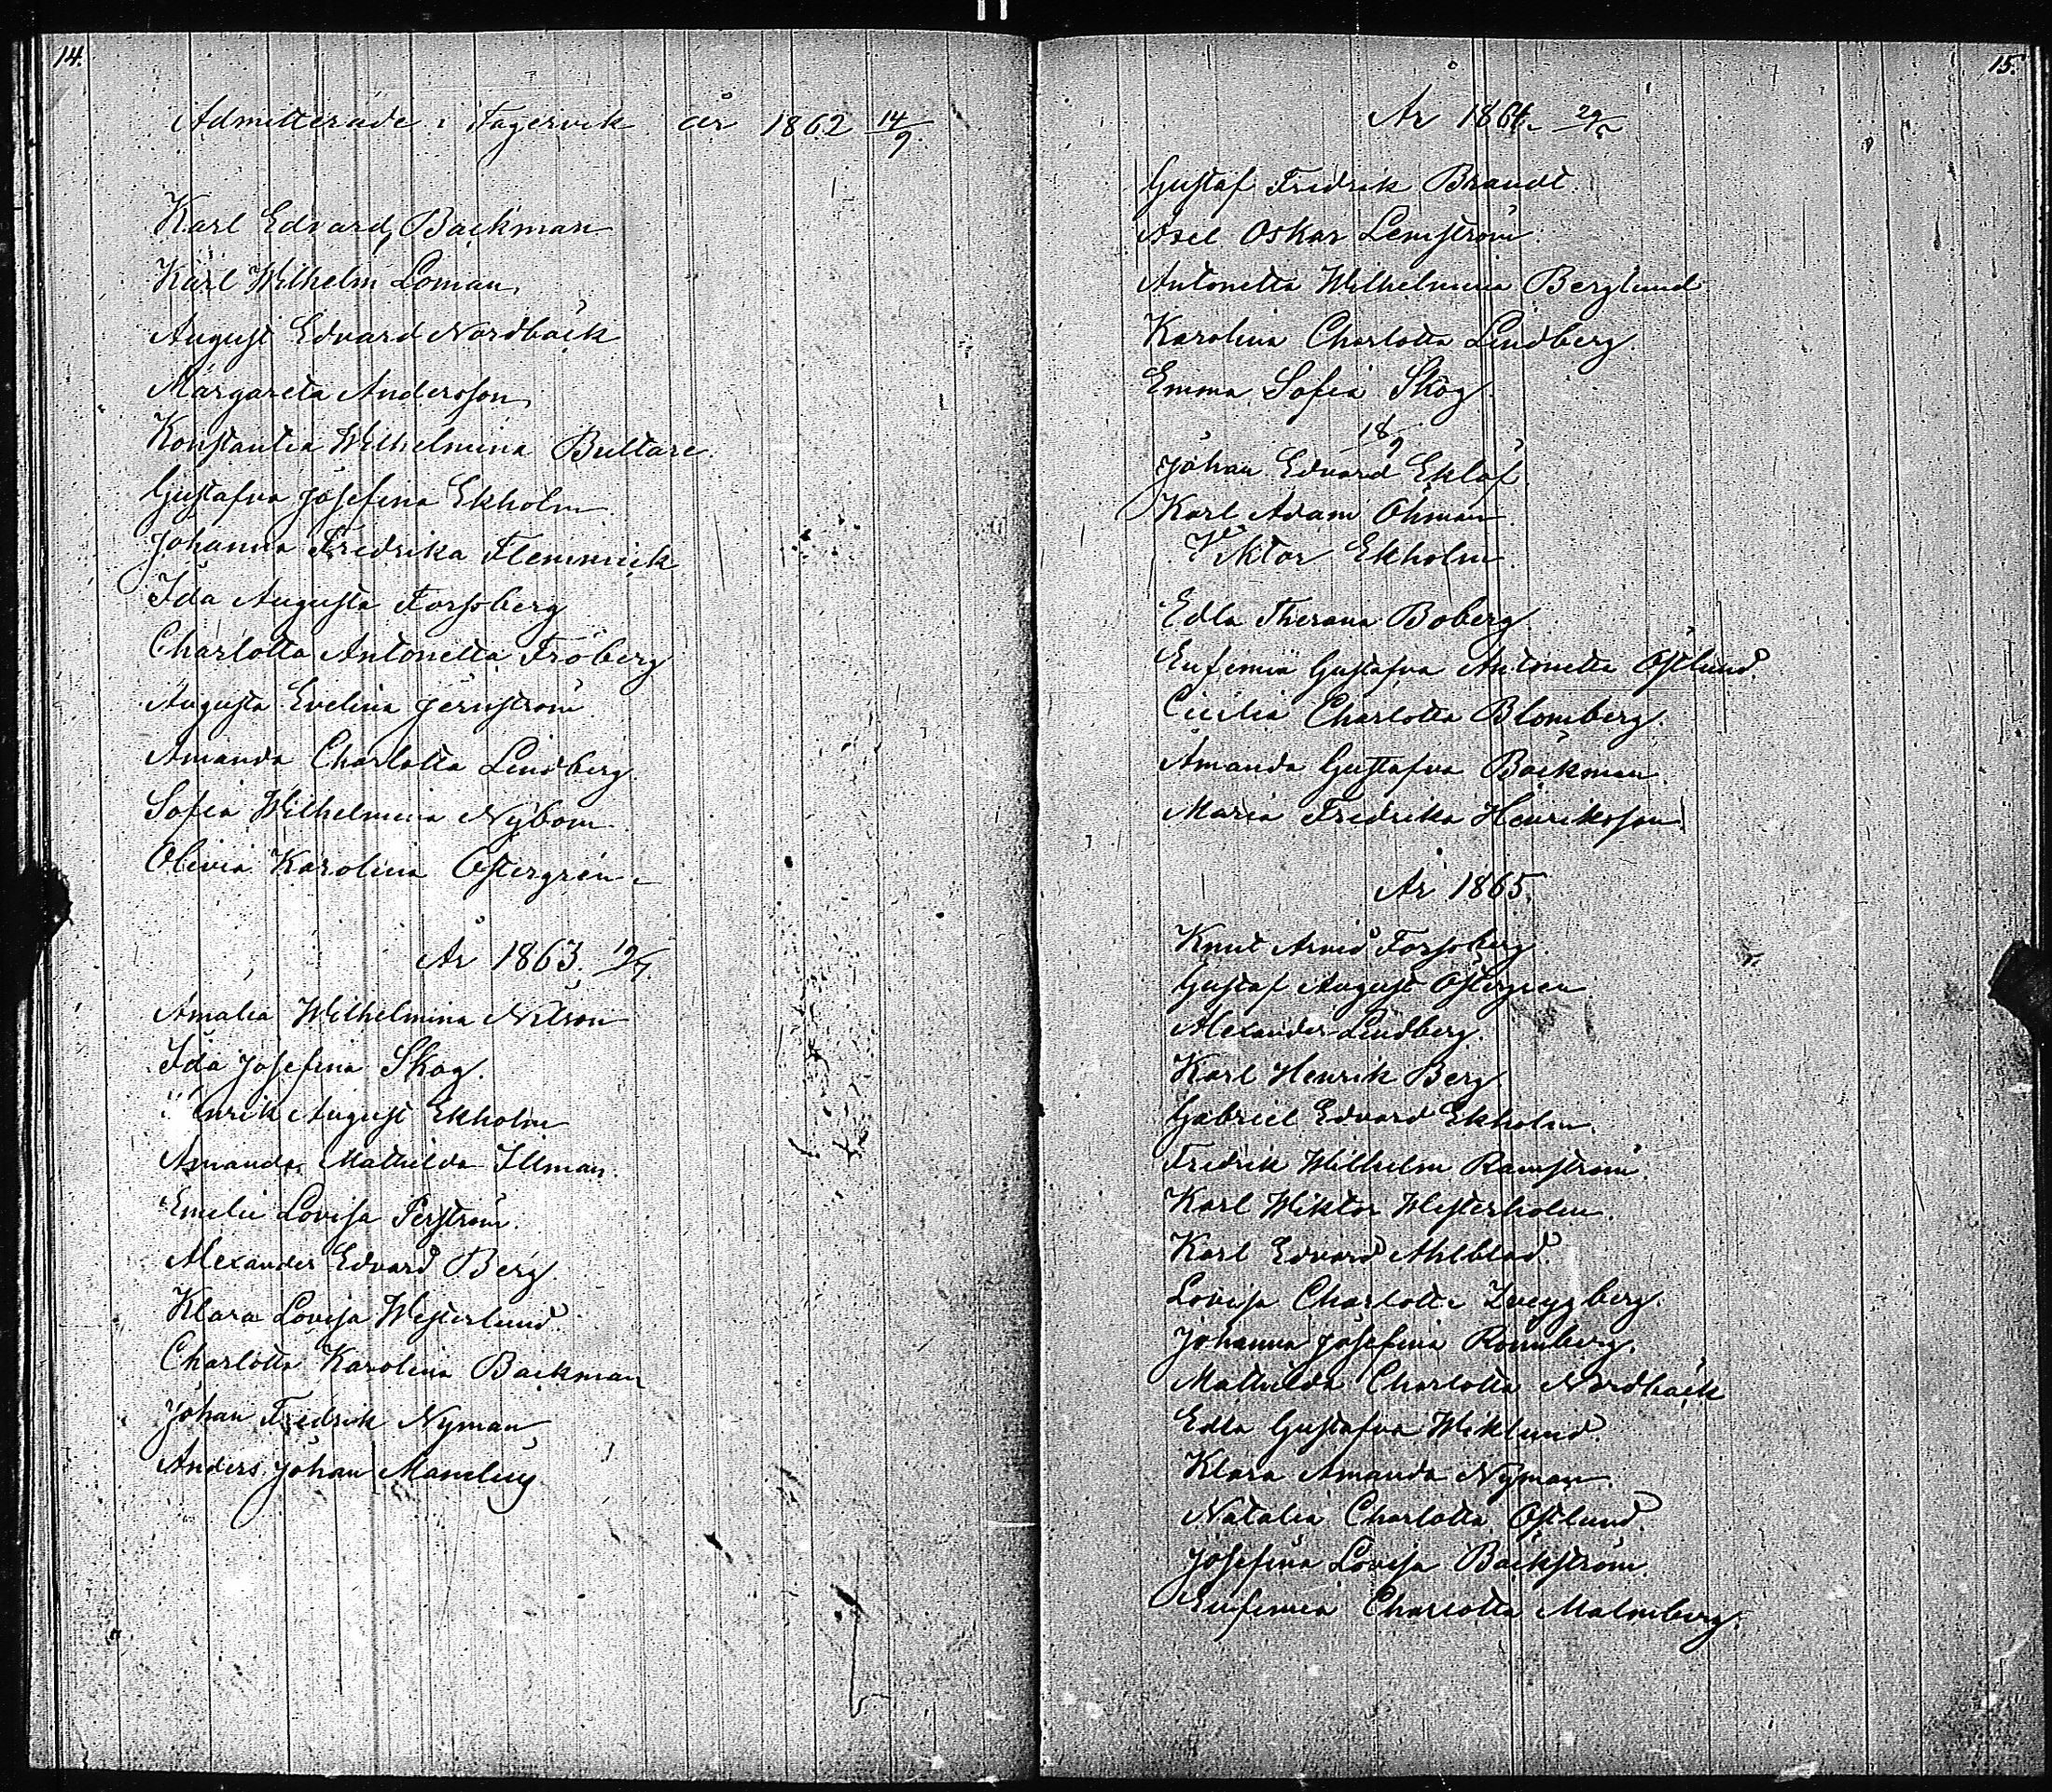 14.
Admitterade i Fagervik år 1862 14/9.
Karl Edvard Backman
Karl Wilhelm Loman
August Edvard Nordbäck
Margareta Andersson
Konstantia Wilhelmina Bultare
Gustafva Josefina Ekholm
Johanna Fredrika Flemmick
Ida Augusta Forssberg
Charlotta Antonetta Fröberg
Augusta Evelina Jernström
Amanda Charlotta Lindberg
Sofia Wilhelmina Nybom
Olivia Karolina Östergren
År 1863. 19/7
Amalia Wilhelmina Nilson
Ida Josefina Skog.
Henrik August Ekholm
Amanda Mathilda Illman.
Emelie Lovisa Perström.
Alexander Edvard Berg.
Klara Lovisa Westerlund.
Charlotta Karolina Backman
Johan Fredrik Nyman
Anders Johan
15.
År 1864. 29/5
Gustaf Fredrik Brandt.
Axel Oskar Lemström.
Antonetta Wilhelmina Berglund
Karolina Charlotta Lindberg.
Emma Sofia Skog
18/9
Johan Edvard Eklöf.
Karl Adam Öhman
Viktor Ekholm.
Edla Boberg
Eufemia Gustafva Antonetta Östlund.
Cicilia Charlotta Blomberg.
Amanda Gustafva Bäckman.
Maria Fredrika Henriksson.
År 1865.
Knut Arvid Forssberg
Gustaf August Östergren
Alexander Lindberg.
Karl Henrik Berg.
Gabriel Edvard Ekholm.
Fredrik Wilhelm Ramström.
Karl Wiktor Westerholm.
Karl Edvard Ahlblad.
Lovisa Charlotta Zveygberg.
Johanna Josefina Rönnberg.
Mathilda Charlotta Nordbäck
Edla Gustafva Wiklund.
Klara Amanda Nyman.
Natalia Charlotta Östlund.
Josefina Lovisa Backström.
Eufemia Charlotta Malmberg.